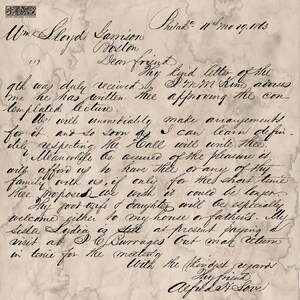 Philada 11th mo 19, 1863
Wm Lloyd Garrison
Boston
Dear friend
Thy kind letter of the
9th was duly received by J M M Kim advises
me he has written thee approving the con-
templated action.
We will immediately make arrangements
for it and so soon as I can learn defin-
itely respecting the Hall will write thee.
Meanwhile be assured of the pleasure it
will afford us to have thee or any of thy
family with us, if only for the short time
thee proposed. We wish it could be longer.
Thy wife & daughter will be especially
welcome either to my house or father's. My
sister Lydia is still at present paying a
visit at but may return
in time for the meeting
With the kindest regards
Thy friend
Alfred H Love